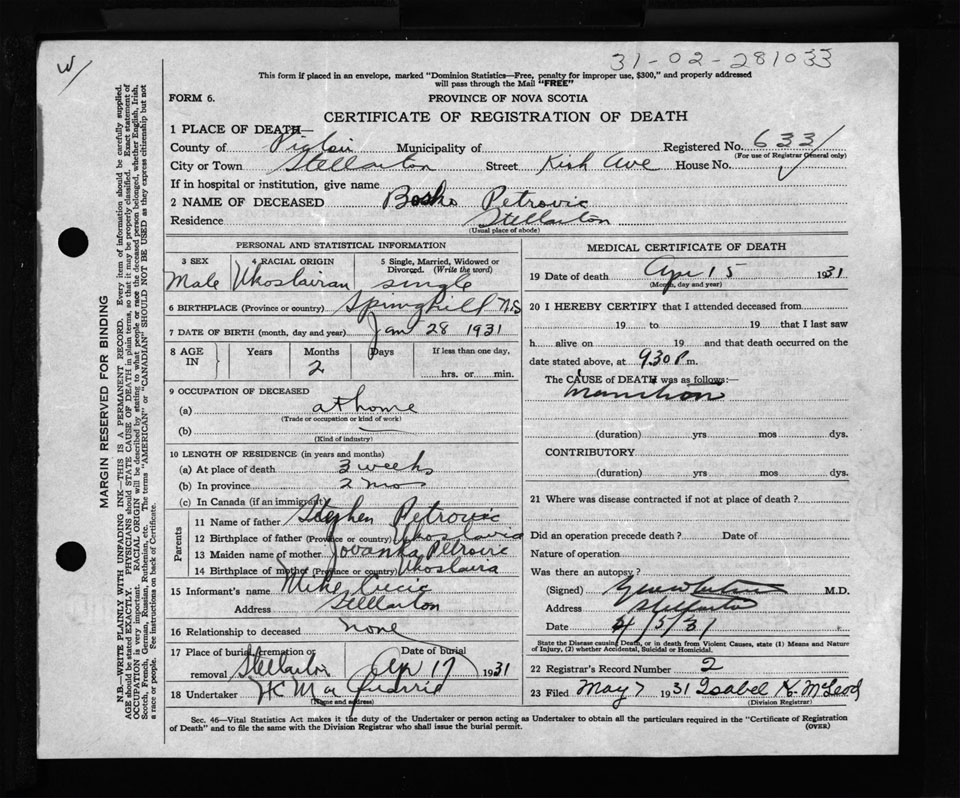 31-02-281033
W/
This form if placed in an envelope, marked "Dominion Statistics—Free, penalty for improper use, $300," and properly addressed
will pass through the Mail "FREE"
FORM 6.
PROVINCE OF NOVA SCOTIA
CERTIFICATE OF REGISTRATION OF DEATH
1 PLACE OF DEATH—
County of Pictou Municipality of Registered No. 633
(For use of Registrar General only)
City or Town Stellarton Street Kish Ave House No.
If in hospital or institution, give name
2 NAME OF DECEASED Bosko Petrovic
Residence Stellarton
(Usual place of abode)
PERSONAL AND STATISTICAL INFORMATION
3 SEX Male
4 RACIAL ORIGIN Ukoslavian
5 Single, Married, Widowed or Divorced. (Write the word) single
6 BIRTHPLACE (Province or country) Springhill N.S
7 DATE OF BIRTH (month, day and year) Jan 28 1931
8 AGE IN Years Months 2 Days If less than one day, hrs. or min.
9 OCCUPATION OF DECEASED
(a) at home
(Trade or occupation or kind of work)
(b)
(Kind of industry)
10 LENGTH OF RESIDENCE (in years and months)
(a) At place of death 3 weeks
(b) In province 2 mos
(c) In Canada (if an immigrant)
Parents
11 Name of father Stephen Petrovic
12 Birthplace of father (Province or country) Ukoslavia
13 Maiden name of mother Jovanka Petrovic
14 Birthplace of mother (Province or country) Ukoslavia
15 Informant's name Mike
Address Stellarton
16 Relationship to deceased none
17 Place of burial, cremation or removal Stellarton Date of burial Apr 17 1931
18 Undertaker
(Name and address)
MEDICAL CERTIFICATE OF DEATH
19 Date of death Apr 15 1931
(Month, day and year)
20 I HEREBY CERTIFY that I attended deceased from
19 to 19 that I last saw
h alive on 19 and that death occurred on the
date stated above, at 9.30 P.m.
The CAUSE of DEATH was as follows:—
(duration) yrs mos dys.
CONTRIBUTORY
(duration) yrs mos dys.
21 Where was disease contracted if not at place of death ?
Did an operation precede death ? Date of
Nature of operation
Was there an autopsy ?
(Signed) M.D.
Address Stellarton
Date 4/5/31
State the Disease causing Death, or in death from Violent Causes, state (1) Means and Nature
of Injury, (2) whether Accidental, Suicidal or Homicidal.
22 Registrar's Record Number 2
23 Filed May 7 1931 Isabel K. McLeod
(Division Registrar)
Sec. 46—Vital Statistics Act makes it the duty of the Undertaker or person acting as Undertaker to obtain all the particulars required in the "Certificate of Registration
of Death" and to file the same with the Division Registrar who shall issue the burial permit. (OVER)
MARGIN RESERVED FOR BINDING
N.B.—WRITE PLAINLY WITH UNFADING INK—THIS IS A PERMANENT RECORD. Every item of information should be carefully supplied.
AGE should be stated EXACTLY. PHYSICIANS should STATE CAUSE OF DEATH in plain terms, so that it may be properly classified. Exact statement of
OCCUPATION is very important. RACIAL ORIGIN will be described by stating to what people or race the deceased person belonged, whether English, Irish,
Scotch, French, German, Russian, Ruthenian, etc. The terms "AMERICAN" or "CANADIAN" SHOULD NOT BE USED as they express citizenship but not
a race or people. See instructions on back of Certificate.